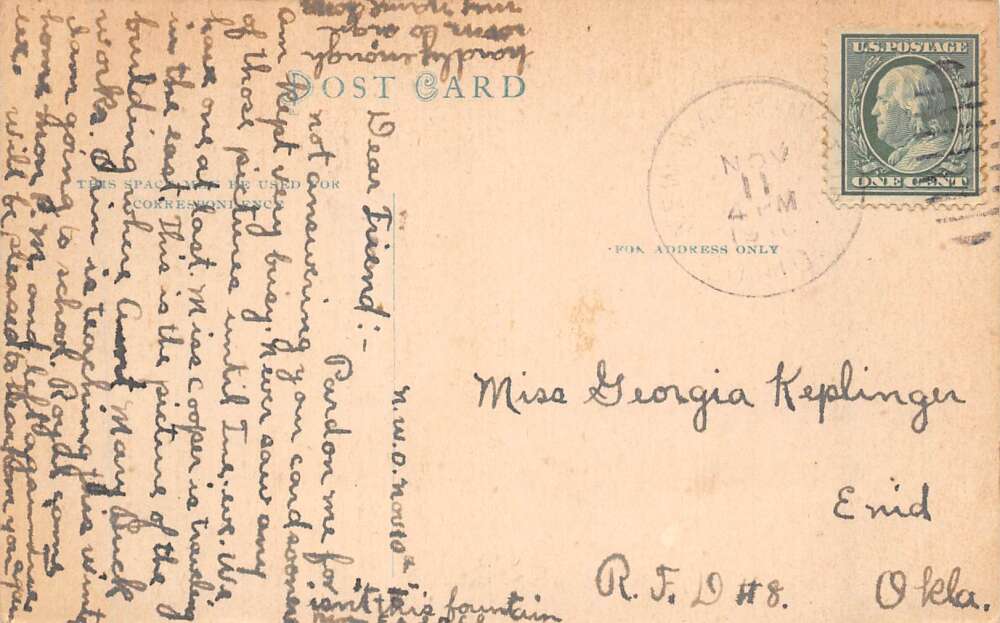 POST CARD
THIS SPACE MAY BE USED FOR
CORRESPONDENCE
FOR ADDRESS ONLY
U.S. POSTAGE
ONE CENT
NOV
11
4 PM
Miss Georgia Keplinger
Enid
R. F. D #8. Okla.
N.W.O. Nov 10
Dear Friend:-
Pardon me for
not answering your card sooner
am kept very busy. never saw any
of those pictures until Tues. eve. We
have one at last. Miss Cooper is trading
in the east. This is the picture of the
building where Aunt Mary Buck
works. Jain is teaching this wint
going to school. Royal came
home from
eve. will be pleased to hear from you again
hardly enough
room to sign
my name
isn't this fountain